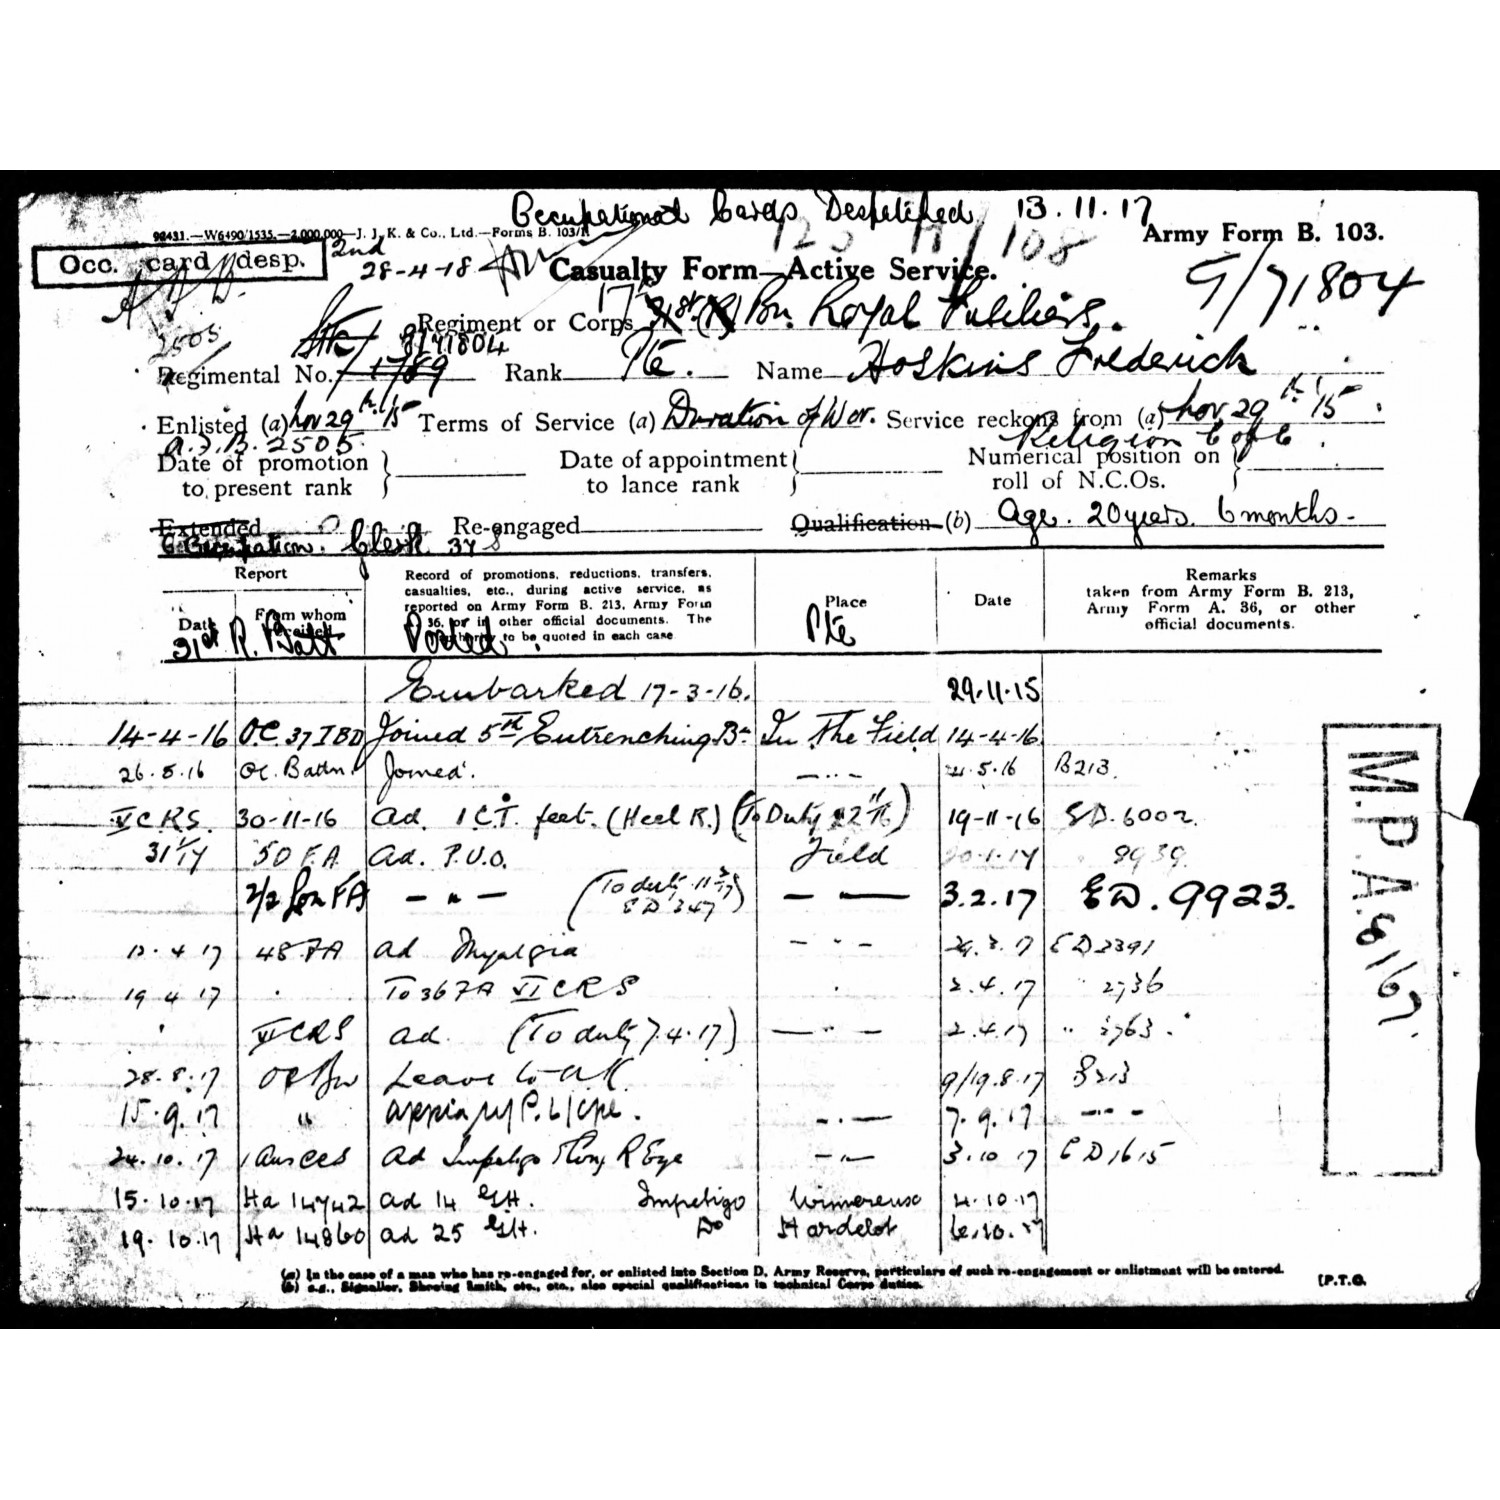 Occupational Cards Despatched 13.11.17
98431.—W6490/1535.—2,000,000—J. J. K. & Co., Ltd.—Forms B. 103/1
Army Form B. 103.
Occ. card desp. 2nd 28-4-18
Casualty Form—Active Service.
G/71804
17th 31st (R) Bn. Royal Fusiliers.
Regiment or Corps
2505
G/71804
Regimental No. 1789 Rank Pte. Name Hoskins Frederick
Enlisted (a) Nov 29th/15 Terms of Service (a) Duration of War. Service reckons from (a) Nov 29th/15.
A.F.B. 2505. Religion C of E.
Date of promotion to present rank
Date of appointment to lance rank
Numerical position on roll of N.C.Os.
Extended Re-engaged Qualification (b) Age. 20 years. 6 months-
Occupation. Clerk 37
Report
Date
From whom received
Record of promotions, reductions, transfers, casualties, etc., during active service, as reported on Army Form B. 213, Army Form 36, or in other official documents. The authority to be quoted in each case
Place
Date
Remarks
taken from Army Form B. 213, Army Form A. 36, or other official documents.
31st R. Batt Posted. Pte
29.11.15
Embarked 17-3-16.
14-4-16 O.C. 37 IBD Joined 5th Entrenching Bn In The Field 14-4-16
26.5.16 OC. Battn. Joined. —"— 5.16 B213.
V C.R.S. 30-11-16 Ad. I.C.T. feet. (Heel R.) (To Duty 22/11/16) 19-11-16 ED. 6002.
31/1/17 50 F.A Ad. P.U.O. Field 1.17 8939.
2/2 Lon FA — " — (To duty 11/2/17 ED 347) — — 3.2.17 ED. 9923.
4 17 48 FA Ad Myalgia — " — 3.17 ED 2391
19 4 17 To 36 FA VI CRS 2.4.17 2736
VI CRS Ad. (To duty 7.4.17) — " — 2.4.17 " 2763.
28.8.17 OC Bn Leave to UK 9/19.8.17 B213
15.9.17 " L/Cpl. — " — 7.9.17 — " —
24.10.17 Aus CCS Ad Impetigo R Eye — " — 3.10 17 ED 1615
15.10.17 Ha 14742 Ad 14 GH. Impetigo Wimereux 4.10.17
19.10.17 Ha 14860 Ad 25 GH. Do Hardelot 6.10.17
M.P.A.
(a) In the case of a man who has re-engaged for, or enlisted into Section D, Army Reserve, particulars of such re-engagement or enlistment will be entered.
(b) e.g., Signaller, Shoeing Smith, etc., etc., also special qualifications in technical Corps duties.
[P.T.O.